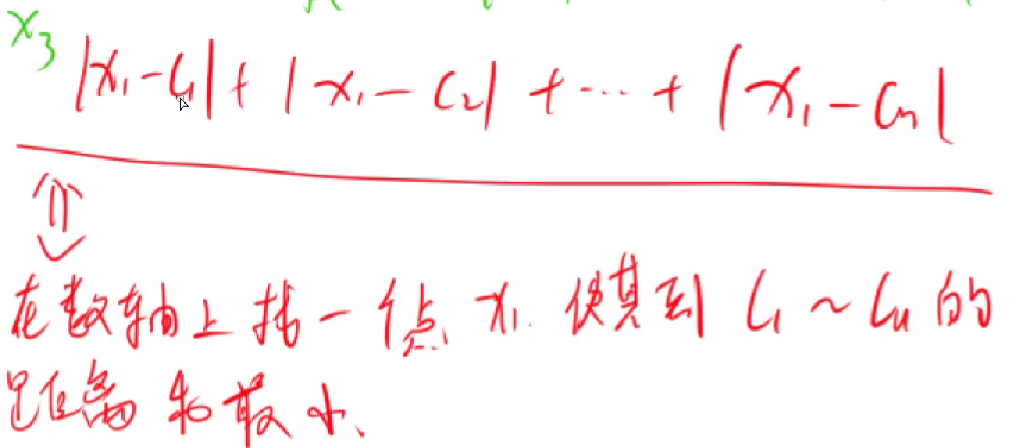 x₃
|x₁-C₁|+|x₁-C₂|+⋯+|x₁-Cₙ|
⇕
在数轴上找一个点 x₁ 使其到 C₁~Cₙ 的
距离和最小、